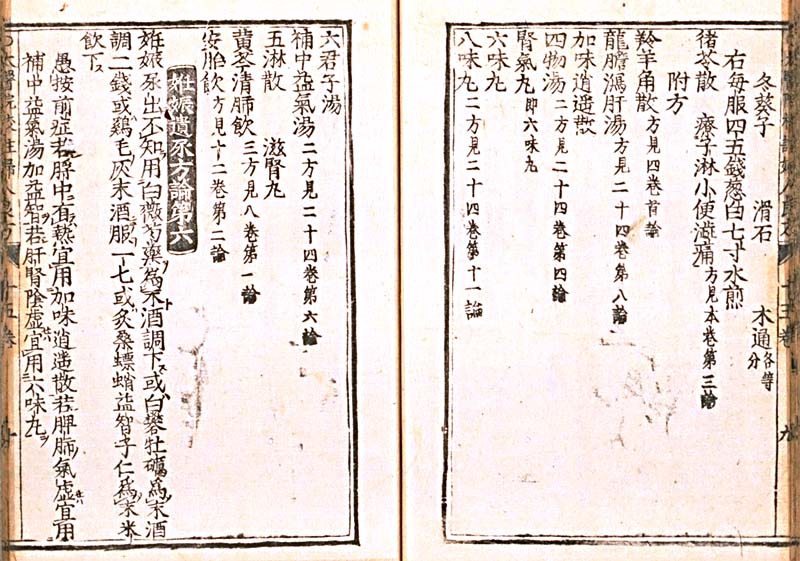 冬葵子 滑石 木通各等分
右每服四五錢葱白七寸水煎
附方
猪苓散 療子淋小便澁痛方見本卷第三論
羚羊角散方見四卷首論
龍膽瀉肝湯方見二十四卷第八論
加味逍遥散
四物湯二方見二十四卷第四論
腎氣丸即六味丸
六味丸
八味丸二方見二十四卷第十一論
六君子湯
補中益氣湯二方見二十四卷第六論
五淋散 滋腎丸
黄芩清肺飲三方見八卷第一論
安胎飲方見十二卷第二論
妊娠遺尿方論第六
妊娠尿出不知用白薇芍藥為末酒調下或白礬牡蠣為末酒
調二錢或鷄毛灰末酒服一七或炙桑螵蛸益智子仁為末米
飲下
愚按前症若脬中有熱宜用加味逍遥散若脾肺氣虛宜用
補中益氣湯加益智若肝腎陰虛宜用六味丸